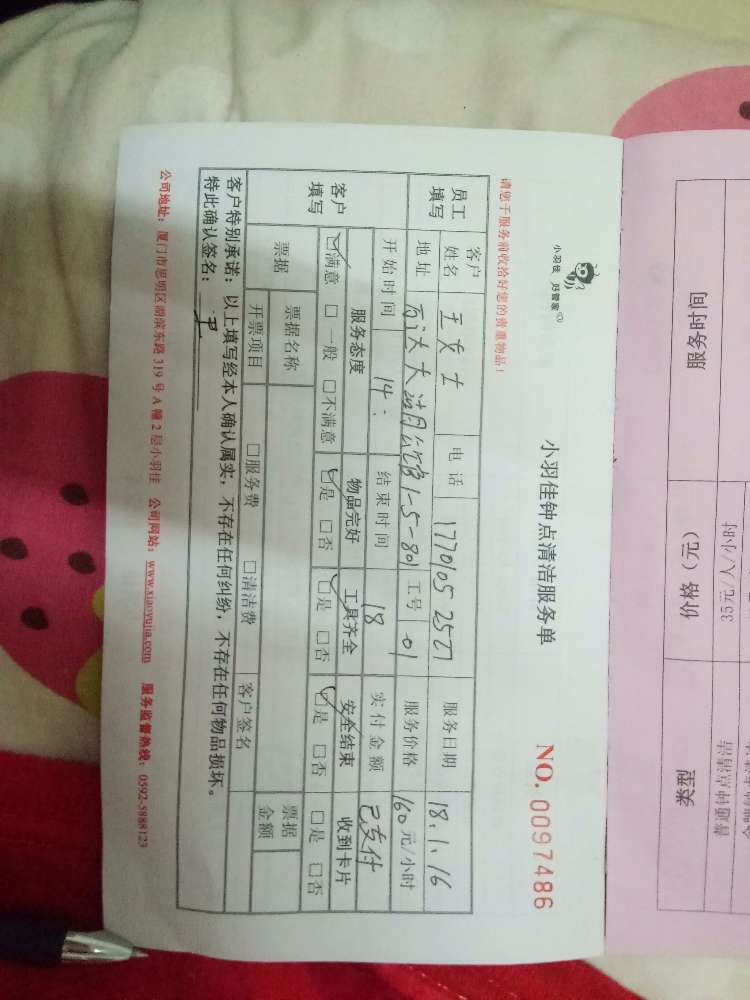 小羽佳 好管家
小羽佳钟点清洁服务单
NO. 0097486
请您于服务前收拾好您的贵重物品！
员工填写 客户姓名 王女士 电话 17701052527 服务日期 18.1.16
地址 1-5-801 工号 01 服务价格 160元/小时
开始时间 14: 结束时间 18 实付金额 已支付
客户填写 服务态度 物品完好 工具齐全 安全结束 收到卡片
☑满意 □一般 □不满意 ☑是 □否 ☑是 □否 ☑是 □否 □是 □否
票据 票据名称 票据金额
开票项目 □服务费 □清洁费 客户签名
客户特别承诺：以上填写经本人确认属实，不存在任何纠纷，不存在任何物品损坏。
特此确认签名：
公司地址：厦门市思明区湖滨东路319号A幢2层小羽佳 公司网站：www.xiaoyujia.com 服务监督热线：0592-5888123
类型 价格（元） 服务时间
普通钟点清洁 35元/人/小时